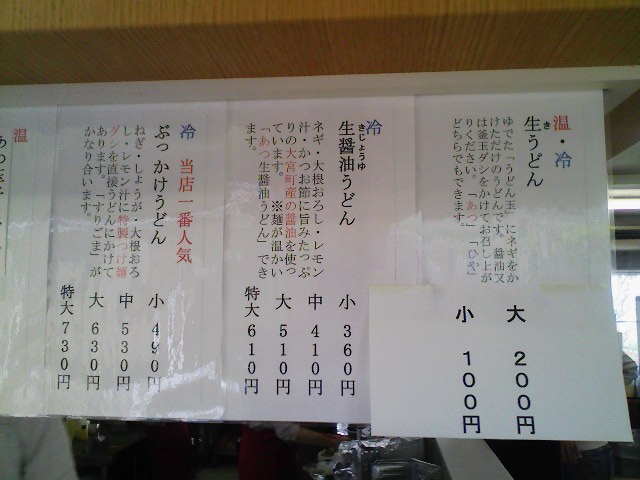 温・冷
生うどん
き
ゆでた「うどん玉」にネギをか
けただけのうどんです。醤油又
は釜玉ダシをかけてお召し上が
りください。「あつ」「ひや」
どちらでもできます。
大 200円
小 100円
冷
生醤油うどん
きじょうゆ
ネギ・大根おろし・レモン
汁・かつお節に旨みたっぷ
りの大宮町産の醤油を使っ
ています。※麺が温かい
「あつ生醤油うどん」でき
ます。
小 360円
中 410円
大 510円
特大 610円
冷 当店一番人気
ぶっかけうどん
ねぎ・しょうが・大根おろ
し・レモン汁に特製つけ麺
ダシを直接うどんにかけて
あります。「すりごま」が
かなり合います。
小 490円
中 530円
大 630円
特大 730円
温